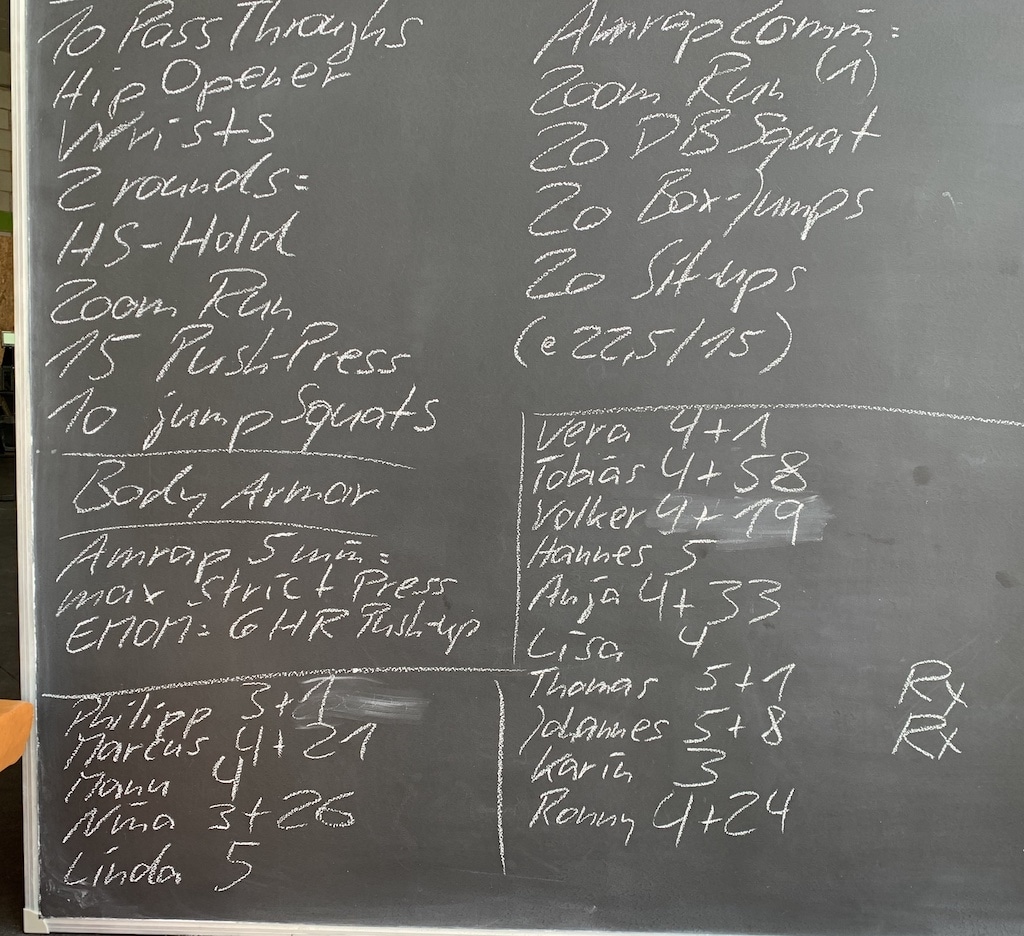 10 Pass Throughs
Hip Opener
Wrists
2 rounds:
HS-Hold
200m Run
15 Push-Press
10 jump Squats
Body Armor
Amrap 5min:
max Strict Press
EMOM: 6 HR Push-up
Philipp 3+1
Marcus 4+21
Manu 4
Nina 3+26
Linda 5
Amrap 20min:
200m Run (1)
20 DB Squat
20 Box-Jumps
20 Sit-ups
(e 22,5/15)
Vera 4+1
Tobias 4+58
Volker 4+19
Hannes 5
Anja 4+33
Lisa 4
Thomas 5+1 Rx
Johannes 5+8 Rx
Karin 3
Ronny 4+24